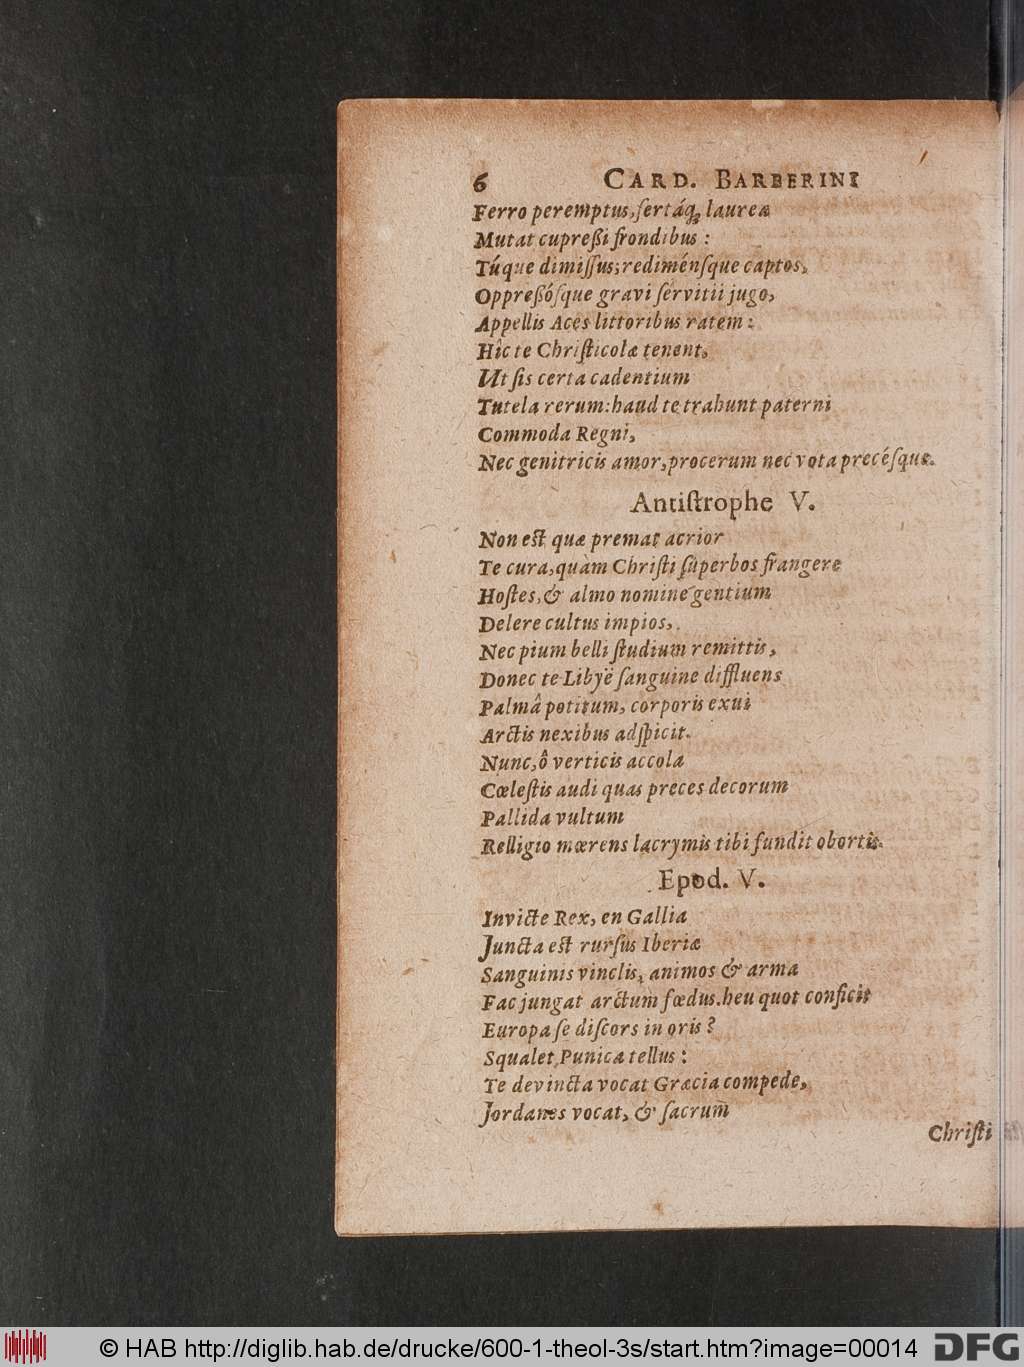 6 CARD. BARBERINI
Ferro peremptus, ſertáq; laureæ
Mutat cupreßi frondibus :
Túque dimiſſus; rediménſque captos,
Oppreßóſque gravi ſervitii jugo,
Appellis Aces littoribus ratem :
Hîc te Chriſticolæ tenent,
Ut ſis certa cadentium
Tutela rerum: haud te trahunt paterni
Commoda Regni,
Nec genitricis amor, procerum nec vota precéſque.
Antiſtrophe V.
Non est quæ premat acrior
Te cura, quàm Chriſti ſuperbos frangere
Hoſtes, & almo nomine gentium
Delere cultus impios,
Nec pium belli ſtudium remittis,
Donec te Libyë ſanguine diffluens
Palmâ potitum, corporis exui
Arctis nexibus adſpicit.
Nunc, ô verticis accola
Cœleſtis audi quas preces decorum
Pallida vultum
Relligio mœrens lacrymis tibi fundit obortis.
Epod. V.
Invicte Rex, en Gallia
Juncta est rurſus Iberiæ
Sanguinis vinclis, animos & arma
Fac jungat arctum fœdus. heu quot conficit
Europa ſe diſcors in oris ?
Squalet Punica tellus :
Te devincta vocat Græcia compede,
Jordanes vocat, & ſacrum
Chriſti
© HAB http://diglib.hab.de/drucke/600-1-theol-3s/start.htm?image=00014
DFG